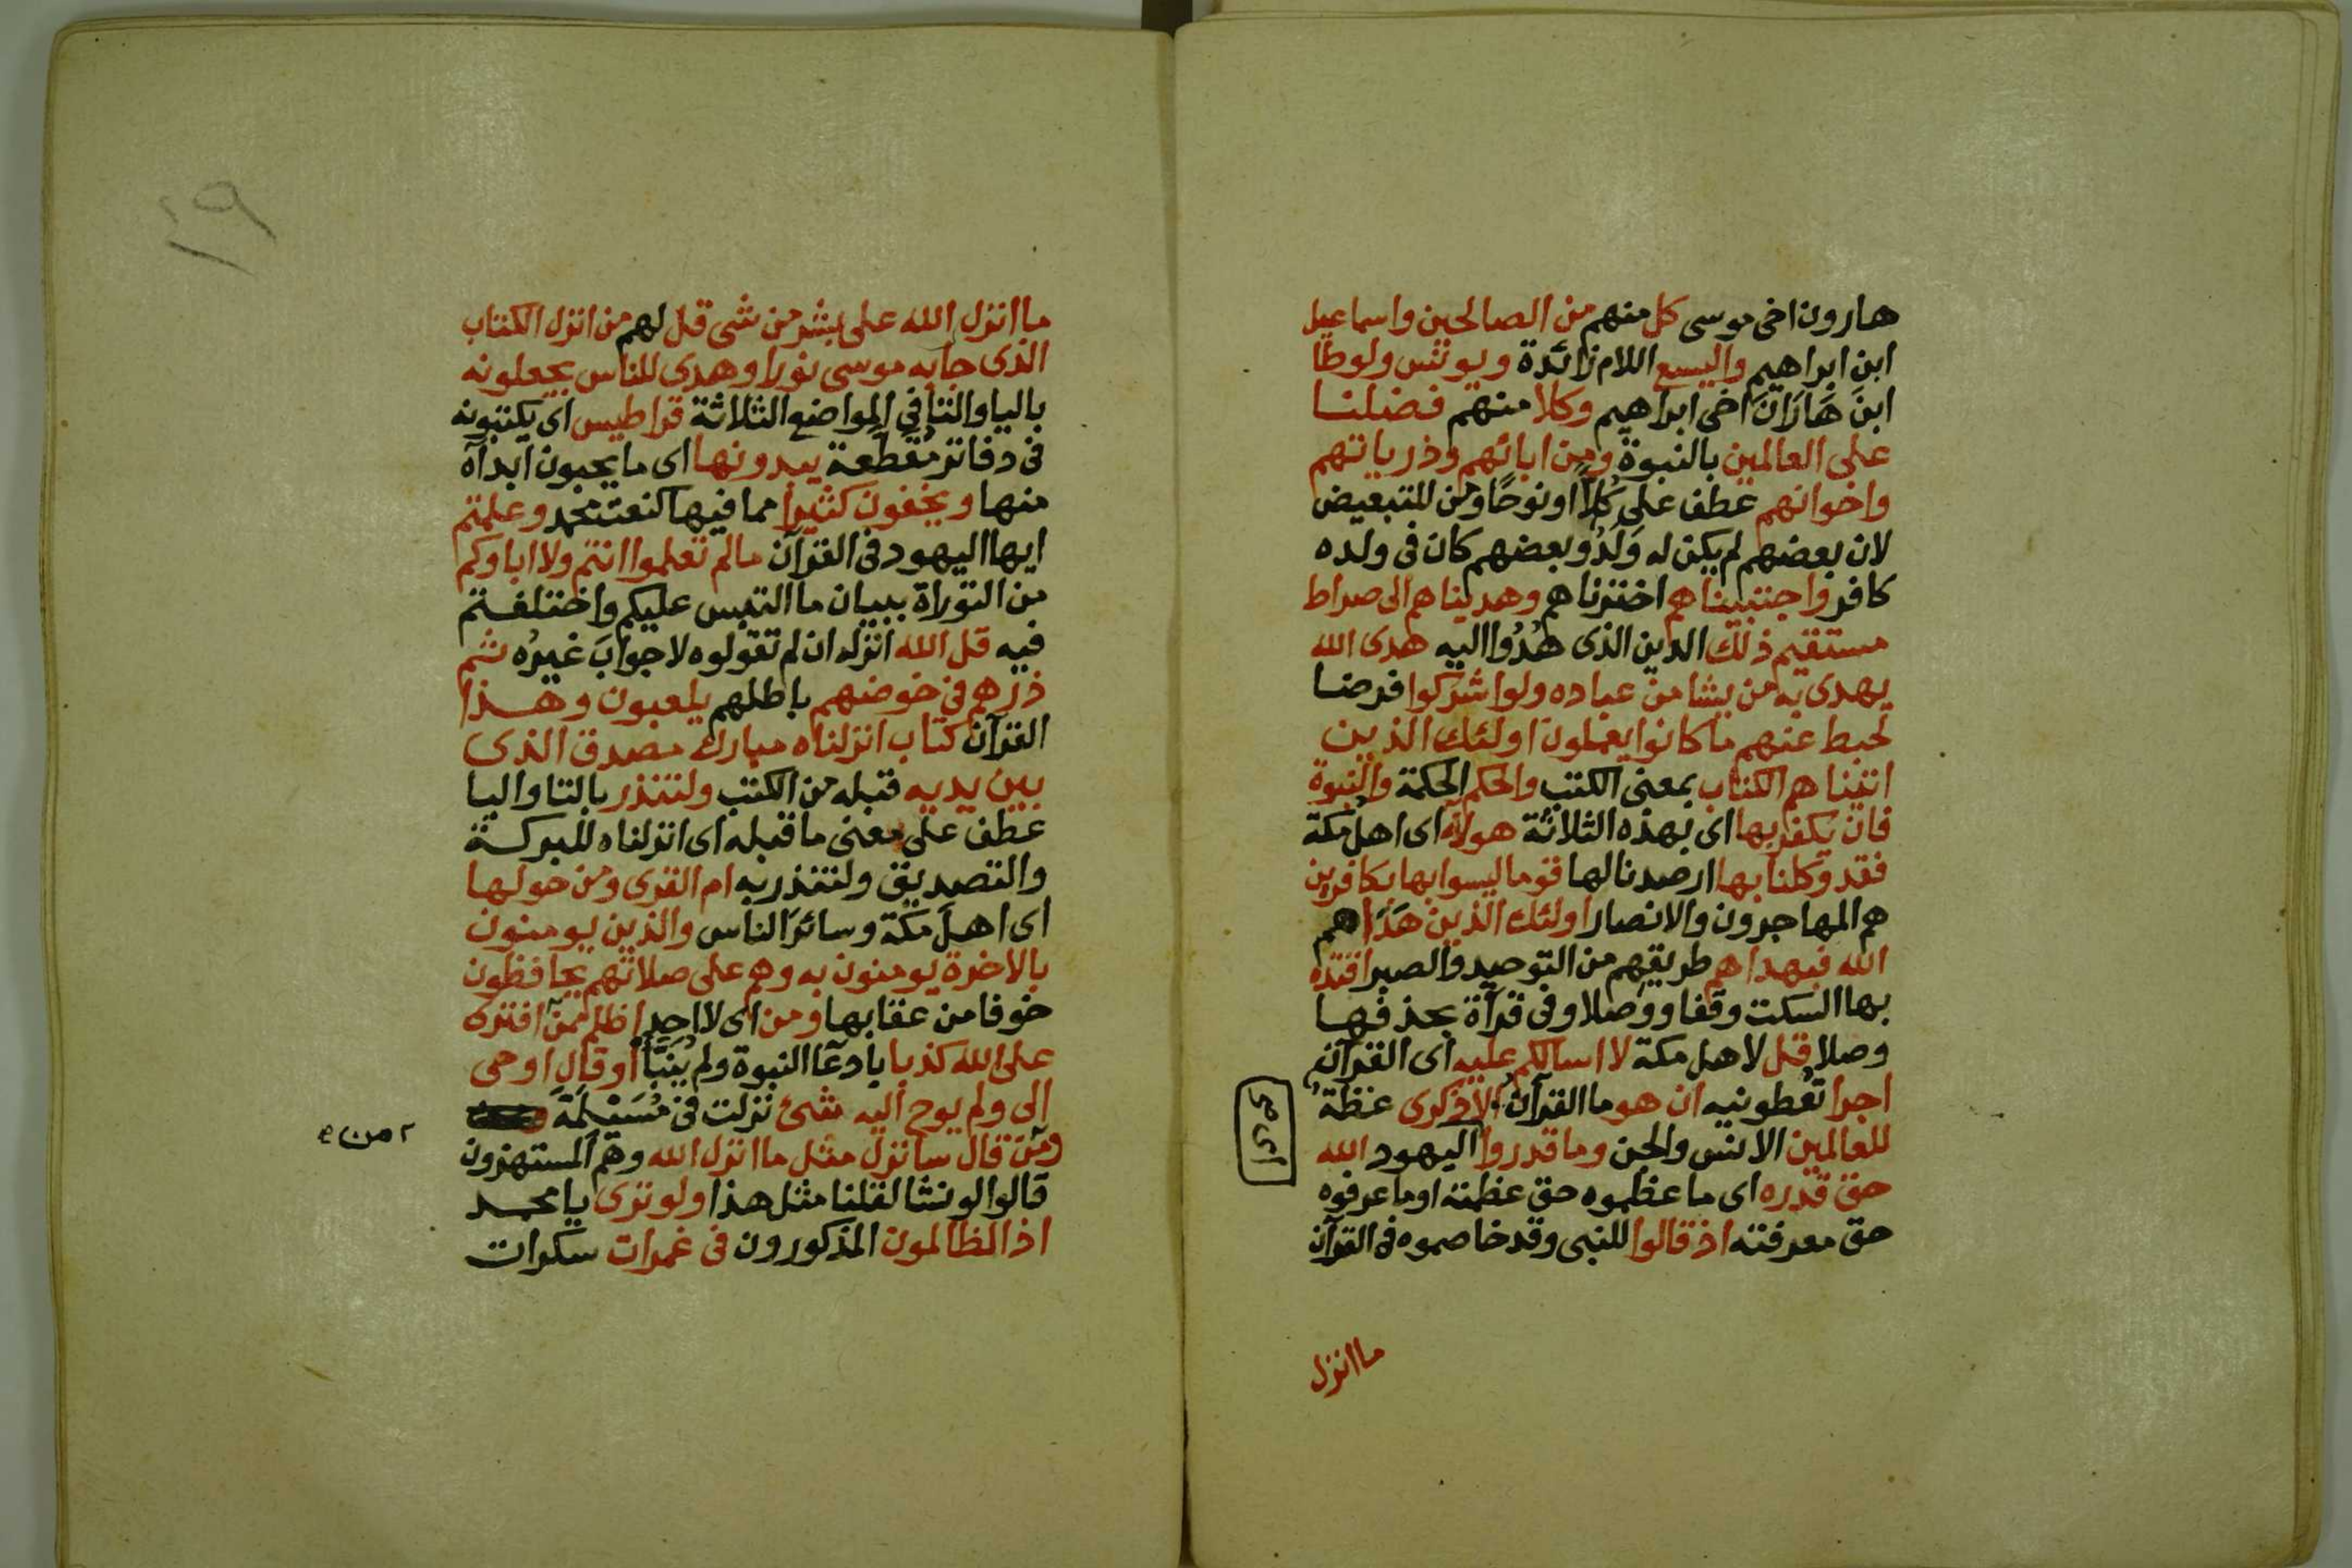 هارون اخى موسى كل منهم من الصالحين واسماعيل
ابن ابراهيم واليسع اللام زائدة ويونس ولوطا
ابنَ هَارَانَ اخى ابراهيم وكلا منهم فضلنا
على العالمين بالنبوة ومن ابائهم وذرياتهم
واخوانهم عطف على كُلاًّ او نوحًا ومن للتبعيض
لان بعضهم لم يكن له وَلَدٌ وبعضهم كان فى ولده
كافر واجتبيناهم اخترناهم وهديناهم الى صراط
مستقيم ذلك الدين الذى هُدُوا اليه هدى الله
يهدى به من يشا من عباده ولو اشركوا فرضا
لحبط عنهم ما كانوا يعملون اولئك الذين
اتيناهم الكتاب بمعنى الكتب والحكم الحكمة والنبوة
فان يكفر بها اى بهذه الثلاثة هولآء اى اهل مكة
فقد وكلنا بها ارصدنا لها قوما ليسوا بها بكافرين
هم المهاجرون والانصار اولئك الذين هَدَاهم
الله فبهداهم طريقهم من التوحيد والصبر اقتده
بها السكت وقفا ووصلا وفى قرآة بحذفها
وصلا قل لاهل مكة لا اسالكم عليه اى القرآن
اجرا تُعْطونيه ان هو ما القرآن الا ذكرى عظةٌ
للعالمين الانس والجن وما قدروا اليهود الله
حق قدره اى ما عظموه حق عظمته او ما عرفوه
حق معرفته اذ قالوا للنبى وقد خاصموه فى القرآن
ما انزل
ما انزل الله على بشر من شى قل لهم من انزل الكتاب
الذى جا به موسى نورا وهدى للناس يجعلونه
باليا والتا فى المواضع الثلاثة قراطيس اى يكتبونه
فى دفاتر مُقطَّعة يبدونها اى ما يحبون ابدآه
منها ويخفون كثيرا مما فيها كنعت محمد وعلمتم
ايها اليهود فى القرآن ما لم تعلموا انتم ولا اباوكم
من التوراة ببيان ما التبس عليكم واختلفتم
فيه قل الله انزله ان لم تقولوه لا جوابَ غيرُه ثم
ذرهم فى خوضهم باطلهم يلعبون وهذا
القرآن كتاب انزلناه مبارك مصدق الذى
بين يديه قبله من الكتب ولتنذر بالتا واليا
عطف على معنى ما قبله اى انزلناه للبركة
والتصديق ولتنذر به ام القرى ومن حولها
اى اهلَ مكة وسائرَ الناس والذين يومنون
بالاخرة يومنون به وهم على صلاتهم يحافظون
خوفا من عقابها ومن اى لا احد اظلم ممن افترى
على الله كذبا بادعآ النبوة ولم يُنَبَّأ او قال اوحى
الى ولم يوح اليه شئ نزلت فى مُسَيْلَمَةَ
ومن قال سانزل مثل ما انزل الله وهم المستهزون
قالوا لو نشا لقلنا مثل هذا ولو ترى يا محمد
اذ الظالمون المذكورون فى غمرات سكرات